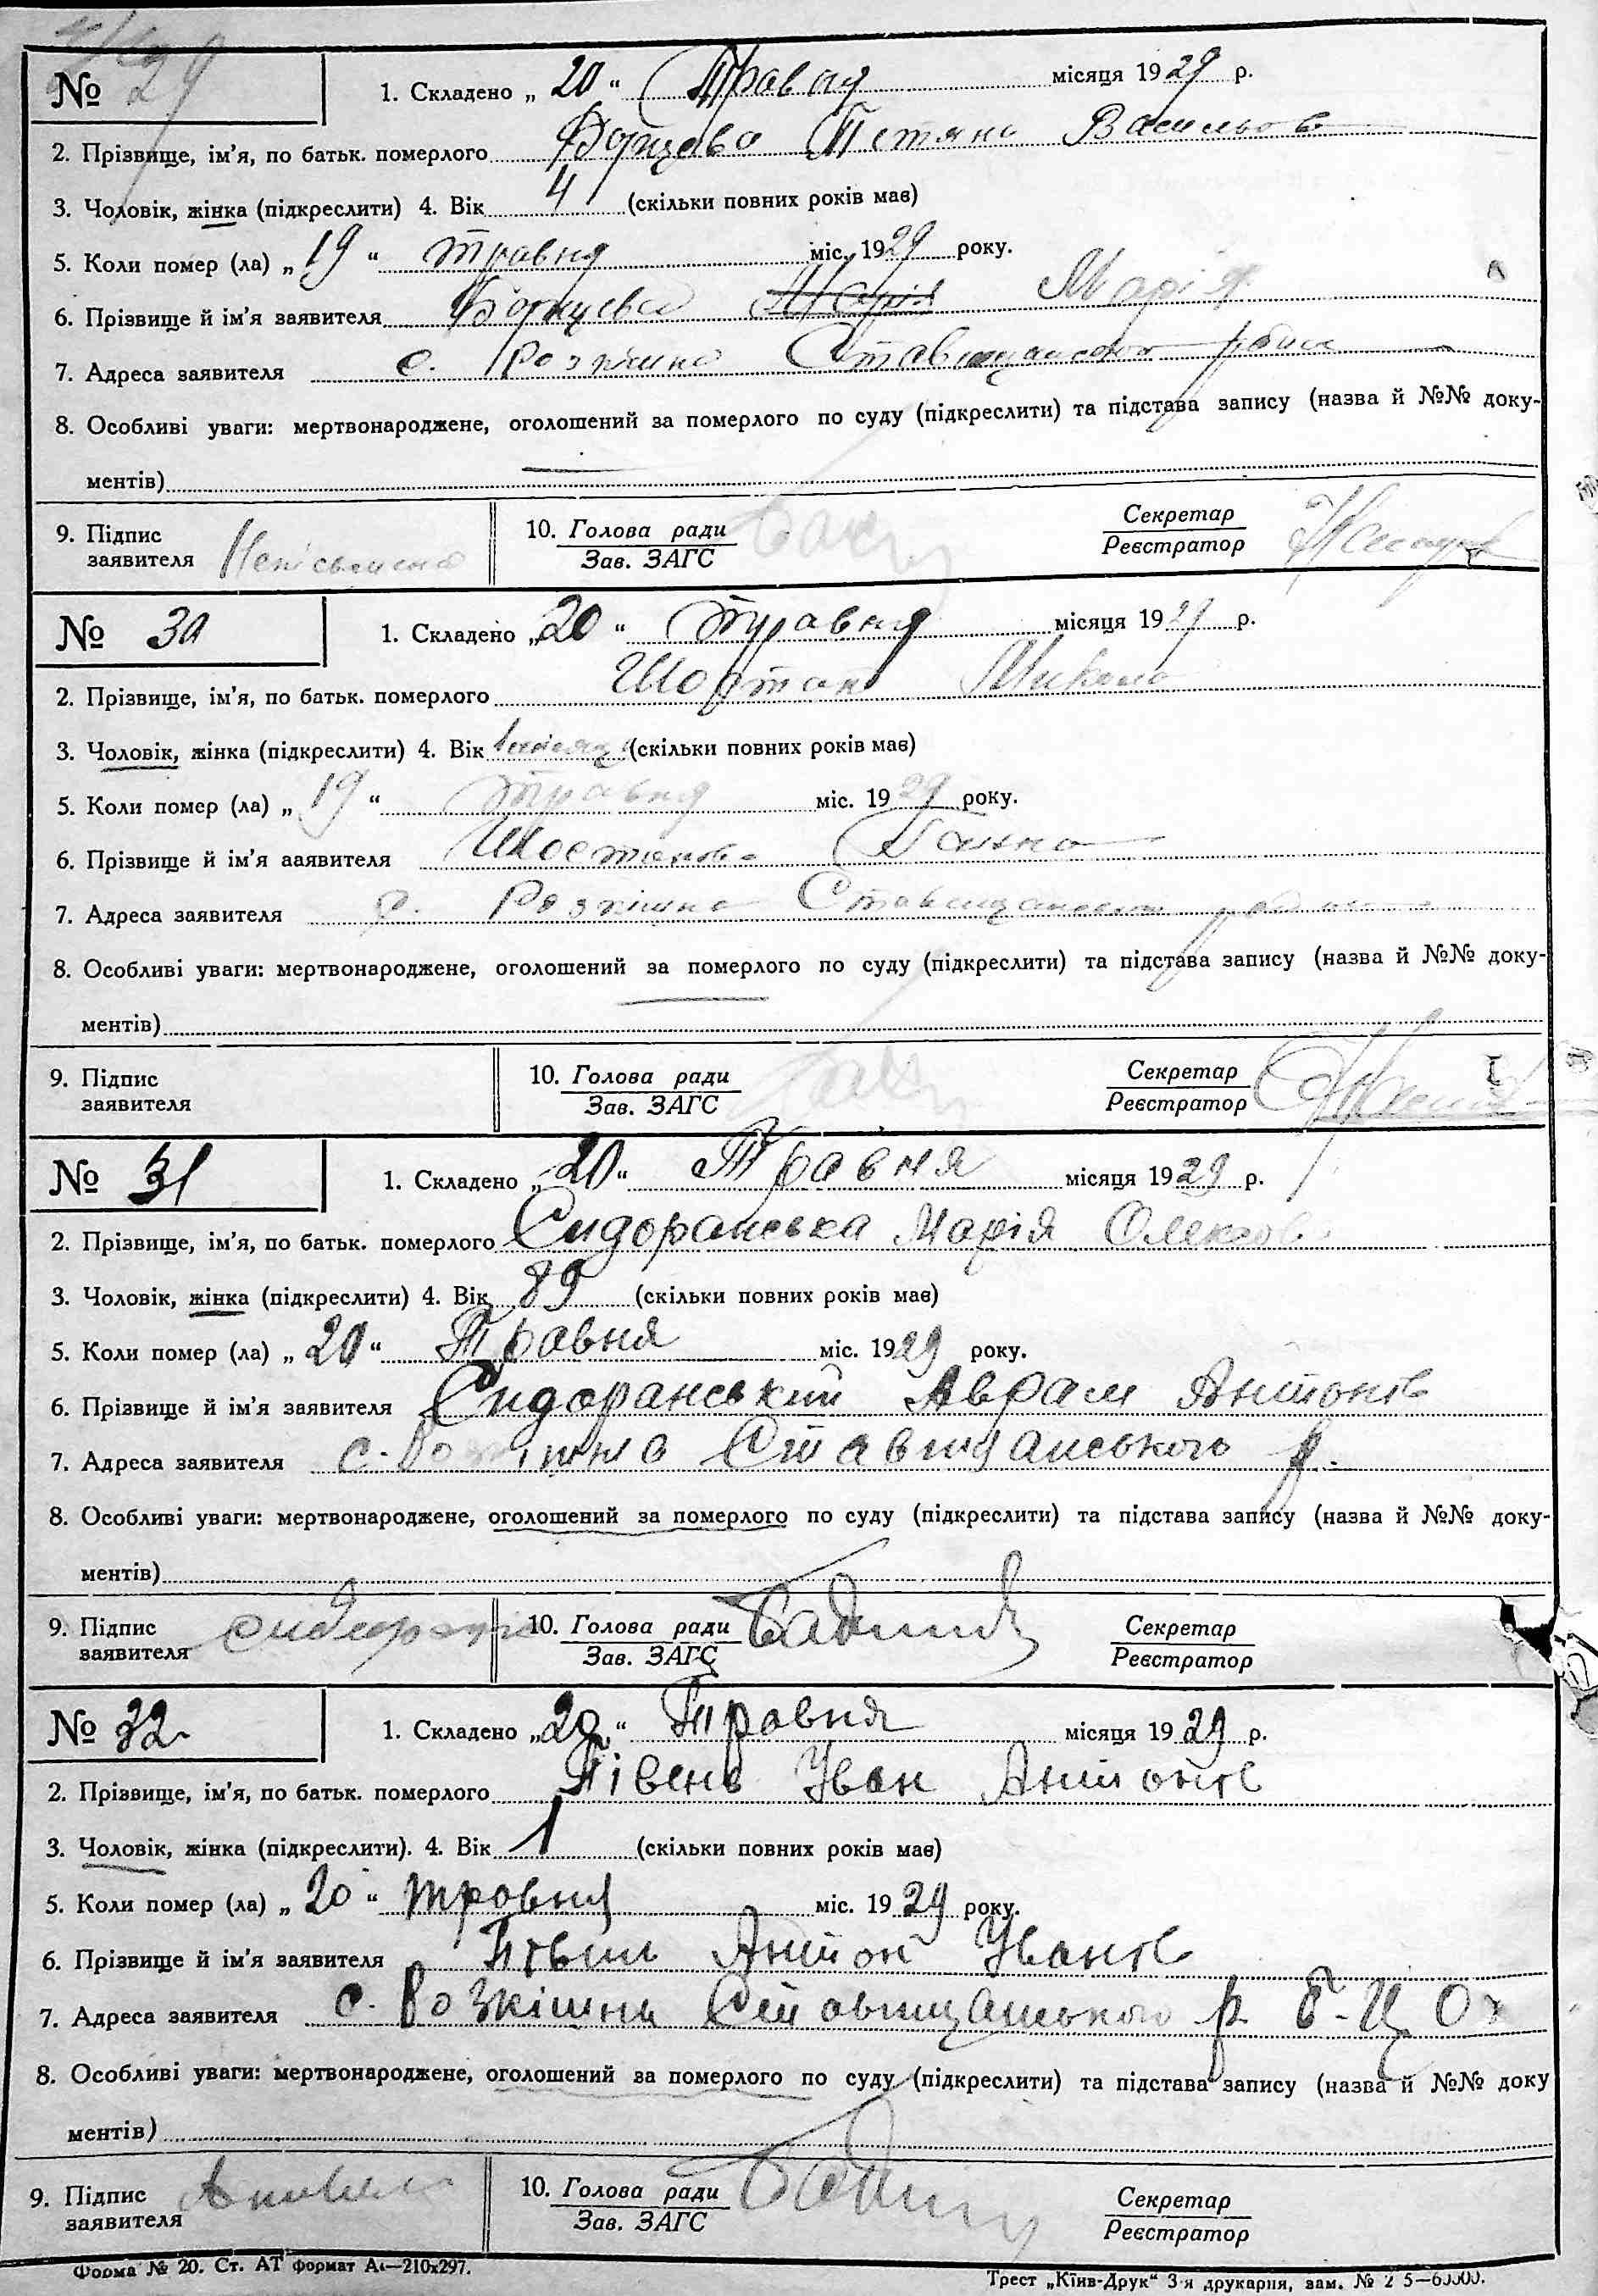 № 29
1. Складено „ 20 “ Травня місяця 1929 р.
2. Прізвище, ім'я, по батьк. померлого Тетяна Васильов
3. Чоловік, жінка (підкреслити) 4. Вік 4 (скільки повних років має)
5. Коли помер (ла) „ 19 “ травня міс. 1929 року.
6. Прізвище й ім'я заявителя Марія Марія
7. Адреса заявителя с. Розкішна Ставищанського району
8. Особливі уваги: мертвонароджене, оголошений за померлого по суду (підкреслити) та підстава запису (назва й №№ доку-
ментів)
9. Підпис
заявителя
10. Голова ради
Зав. ЗАГС
Секретар
Реєстратор
№ 30
1. Складено „ 20 “ травня місяця 1929 р.
2. Прізвище, ім'я, по батьк. померлого Микола
3. Чоловік, жінка (підкреслити) 4. Вік (скільки повних років має)
5. Коли помер (ла) „ 19 “ травня міс. 1929 року.
6. Прізвище й ім'яааявителя Ганна
7. Адреса заявителя с. Розкішна Ставищанського району
8. Особливі уваги: мертвонароджене, оголошений за померлого по суду (підкреслити) та підстава запису (назва й №№ доку-
ментів)
9. Підпис
заявителя
10. Голова ради
Зав. ЗАГС
Секретар
Реєстратор
№ 31
1. Складено „ 20 “ Травня місяця 1929 р.
2. Прізвище, ім'я, по батьк. померлого Сидоранська Марія Олексов
3. Чоловік, жінка (підкреслити) 4. Вік 89 (скільки повних років має)
5. Коли помер (ла) „ 20 “ Травня міс. 1929 року.
6. Прізвище й ім'я заявителя Сидоранський Аврам Антонів
7. Адреса заявителя с. Розкішна Ставищанського р.
8. Особливі уваги: мертвонароджене, оголошений за померлого по суду (підкреслити) та підстава запису (назва й №№ доку-
ментів)
9. Підпис
заявителя
10. Голова ради
Зав. ЗАГС
Секретар
Реєстратор
№ 32
1. Складено „ 20 “ Травня місяця 1929 р.
2. Прізвище, ім'я, по батьк. померлого Півень Іван Антонів
3. Чоловік, жінка (підкреслити). 4. Вік 1 (скільки повних років має)
5. Коли помер (ла) „ 20 “ травня міс. 1929 року.
6. Прізвище й ім'я заявителя Антон Іванів
7. Адреса заявителя с. Розкішна Ставищанського р. Б-Ц Ок
8. Особливі уваги: мертвонароджене, оголошений за померлого по суду (підкреслити) та підстава запису (назва й №№ доку
ментів)
9. Підпис
заявителя
10. Голова ради
Зав. ЗАГС
Секретар
Реєстратор
Форма № 20. Ст. АТ формат А4—210х297.
Трест „Київ-Друк“ 3-я друкарня, зам. №